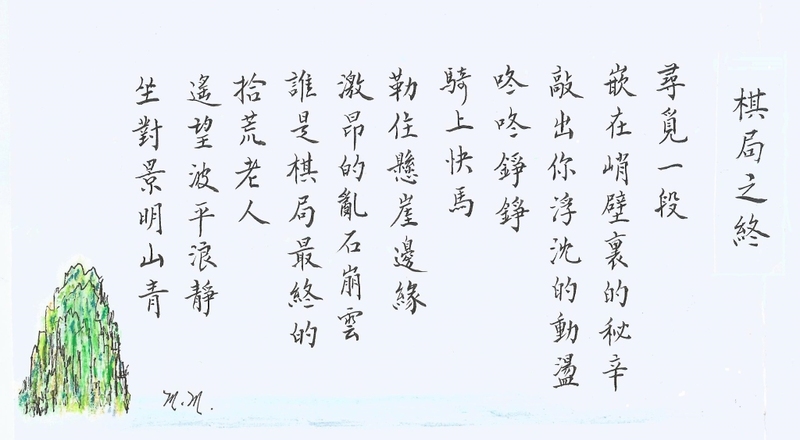 棋局之終
尋覓一段
嵌在峭壁裏的秘辛
敲出你浮沈的動盪
咚咚錚錚
騎上快馬
勒住懸崖邊緣
激昂的亂石崩雲
誰是棋局最終的
拾荒老人
遙望波平浪靜
坐對景明山青
M.M.